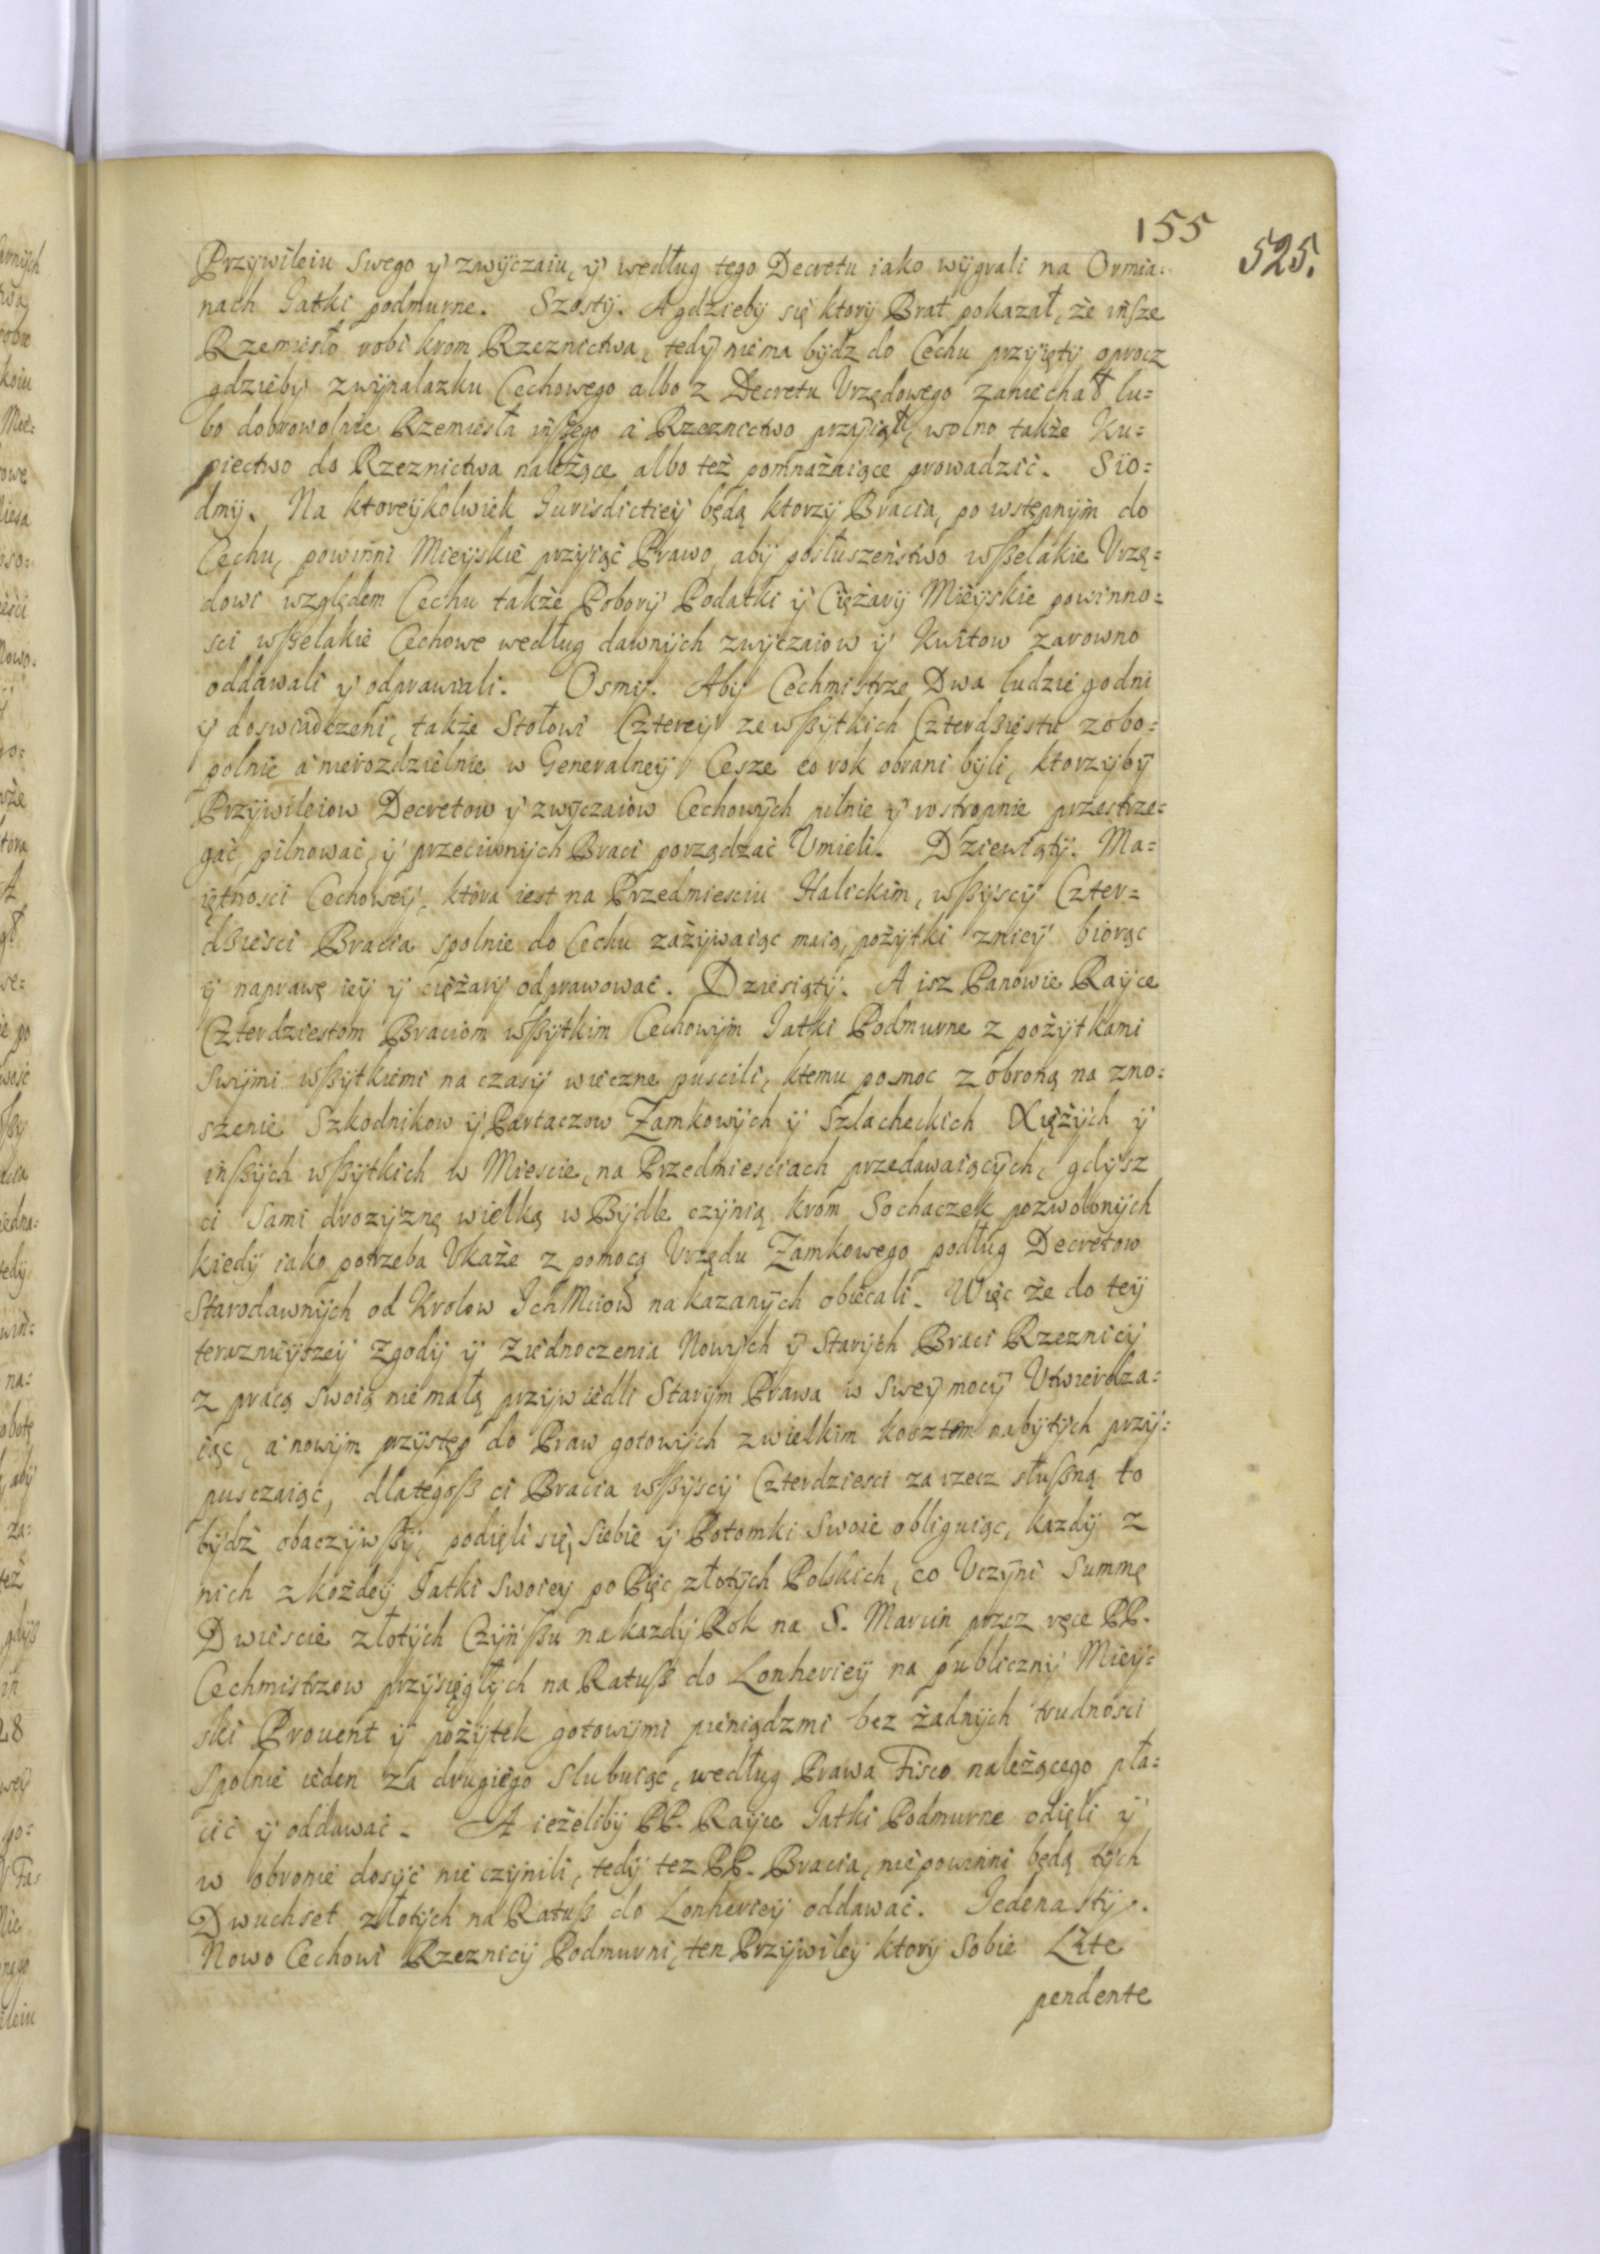 155
525.
Przywileiu Swego y zwyczaiu, y według tego Decretu iako wygrali na Ormia:
nach Gatki podmurne. Szosty. A gdzieby się ktory Brat pokazał, że insze
Rzemiesło robi krom Rzeznictwa, tedy niema bydz do Cechu przyięty oprocz
gdzieby zwynalazku Cechowego albo z Decretu Vrzędowego zaniechał lu:
bo dobrowolnie Rzemiesła inßego a Rzeznictwo przyiął, wolno także Ku:
piectwo do Rzeznictwa należące albo też pomnażaiące prowadzić. Sio:
dmy. Na ktoreykolwiek Gurisdictiey będą ktorzy Bracia, po wstępnym do
Cechu, powinni Mieyskie przyiąć Prawo, aby posłuszeństwo wßelakie Vrzę:
dowi względem Cechu także Pobory Podatki y Ciężary Mieyskie powinno:
sci wßelakie Cechowe według dawnych zwyczaiow y Kwitow zarowno
oddawali y odprawiali. Osmy. Aby Cechmistrze Dwa ludzie godni
y doswiadczeni, także Stołowi Czterey ze wßytkich Czterdziestu zobo:
polnie a nierozdzielnie w Generalney Cesze co rok obrani byli, ktorzyby
Przywileiow Decretow y zwyczaiow Cechowych pilnie y rostropnie przestrze:
gać, pilnować, y przeciwnych Braci porządzać Vmieli. Dziewiąty. Ma:
iętnosci Cechowey, ktora iest na Przedmiesciu Halickim, wßyscy Czter:
dziesci Bracia spolnie do Cechu zażywaiąc maią, pożytki zniey biorąc
y naprawę iey y ciężary odprawować. Dziesiąty. A isz Panowie Rayce
Czterdziestom Braciom wßytkim Cechowym Jatki Podmurne z pożytkami
swymi wßytkiemi na czasy wieczne puscili, ktemu pomoc z obroną na zno:
szenie Szkodnikow y Partaczow Zamkowych y Szlacheckich Xiężych y
inßych wßytkich w Miescie, na Przedmiesciach przedawaiących, gdysz
ci Sami drożyznę wielką w Bydle czynią krom Sochaczek pozwolonych
kiedy iako potrzeba Vkaże z pomocą Vrzędu Zamkowego podług Decretow
Starodawnych od Krolow IchMciow nakazanych obiecali. Więc że do tey
teraznieyszey Zgody y Ziednoczenia Nowych y Starych Braci Rzeznicy
z pracą swoią nie małą przywiedli Starym Prawa w swey mocy Vtwierdza:
iąc, a nowym przystęp do Praw gotowych zwielkim kosztem nabytych przy:
pusczaiąc, dlategoß ci Bracia wßyscy Czterdziesci za rzecz słußną to
bydź obaczywßy, podięli się, siebie y Potomki Swoie obliguiąc, kazdy z
nich z każdey Jatki Swoiey po Pięc złotych Polskich, co Vczyni Summę
Dwiescie złotych Czynßu na kazdy Rok na S. Marcin przez ręce PP.
Cechmistrzow przysięgłych na Ratuß do Lonheriey na publiczny Miey:
ski Prouent y pożytek gotowymi pieniądzmi bez żadnych trudnosci
spolnie ieden za drugiego slubuiąc, według Prawa Fisco należącego pła:
cić y oddawać. A ieżeliby PP. Rayce Jatki Podmurne odięli y
w obronie dosyć nie czynili, tedy tez PP. Bracia, niepowinni będą tych
Dwuchset złotych na Ratuß do Lonheriey oddawać. Jedenasty.
Nowo Cechowi Rzeznicy Podmurni, ten Przywiley ktory Sobie Lite
pendente